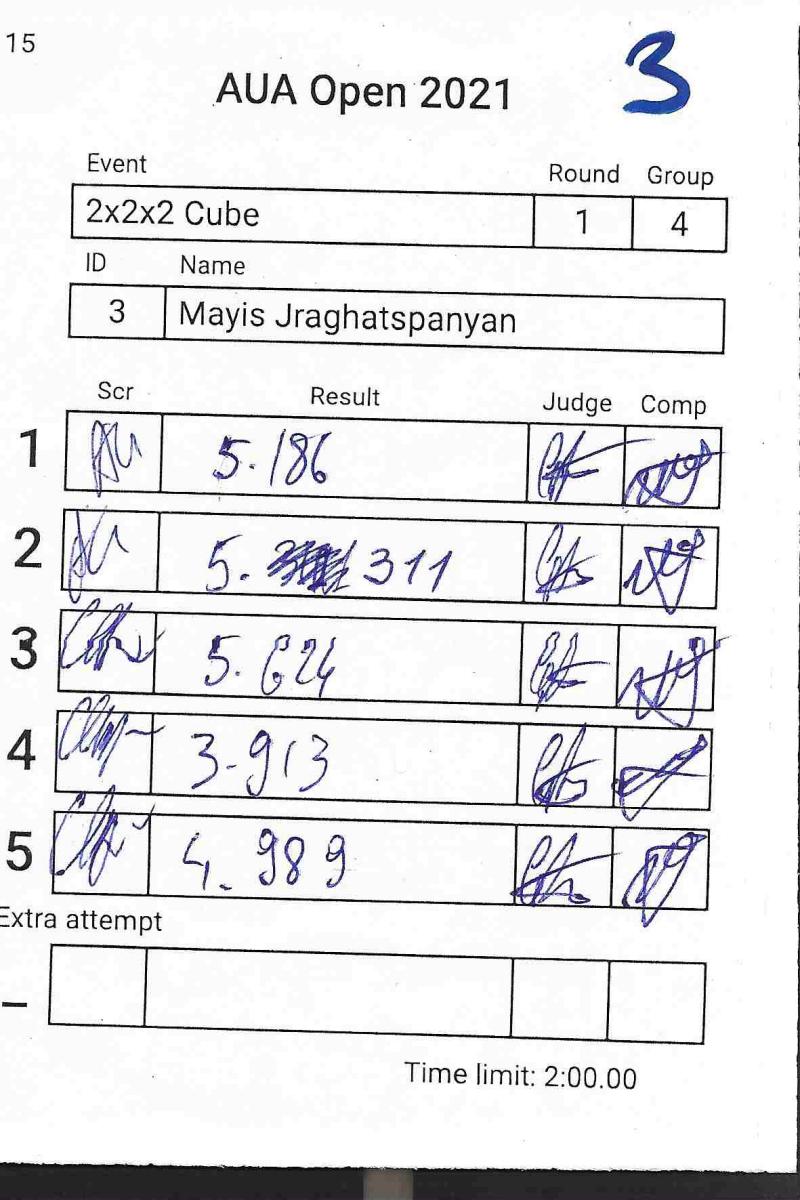 15
3
AUA Open 2021
Event Round Group
2x2x2 Cube 1 4
ID Name
3 Mayis Jraghatspanyan
Scr Result Judge Comp
1 5.186
2 5. 311
3 5.624
4 3.913
5 4.989
Extra attempt
–
Time limit: 2:00.00